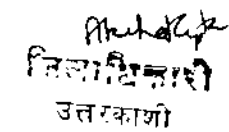 जिलाधिकारी
उत्तरकाशी